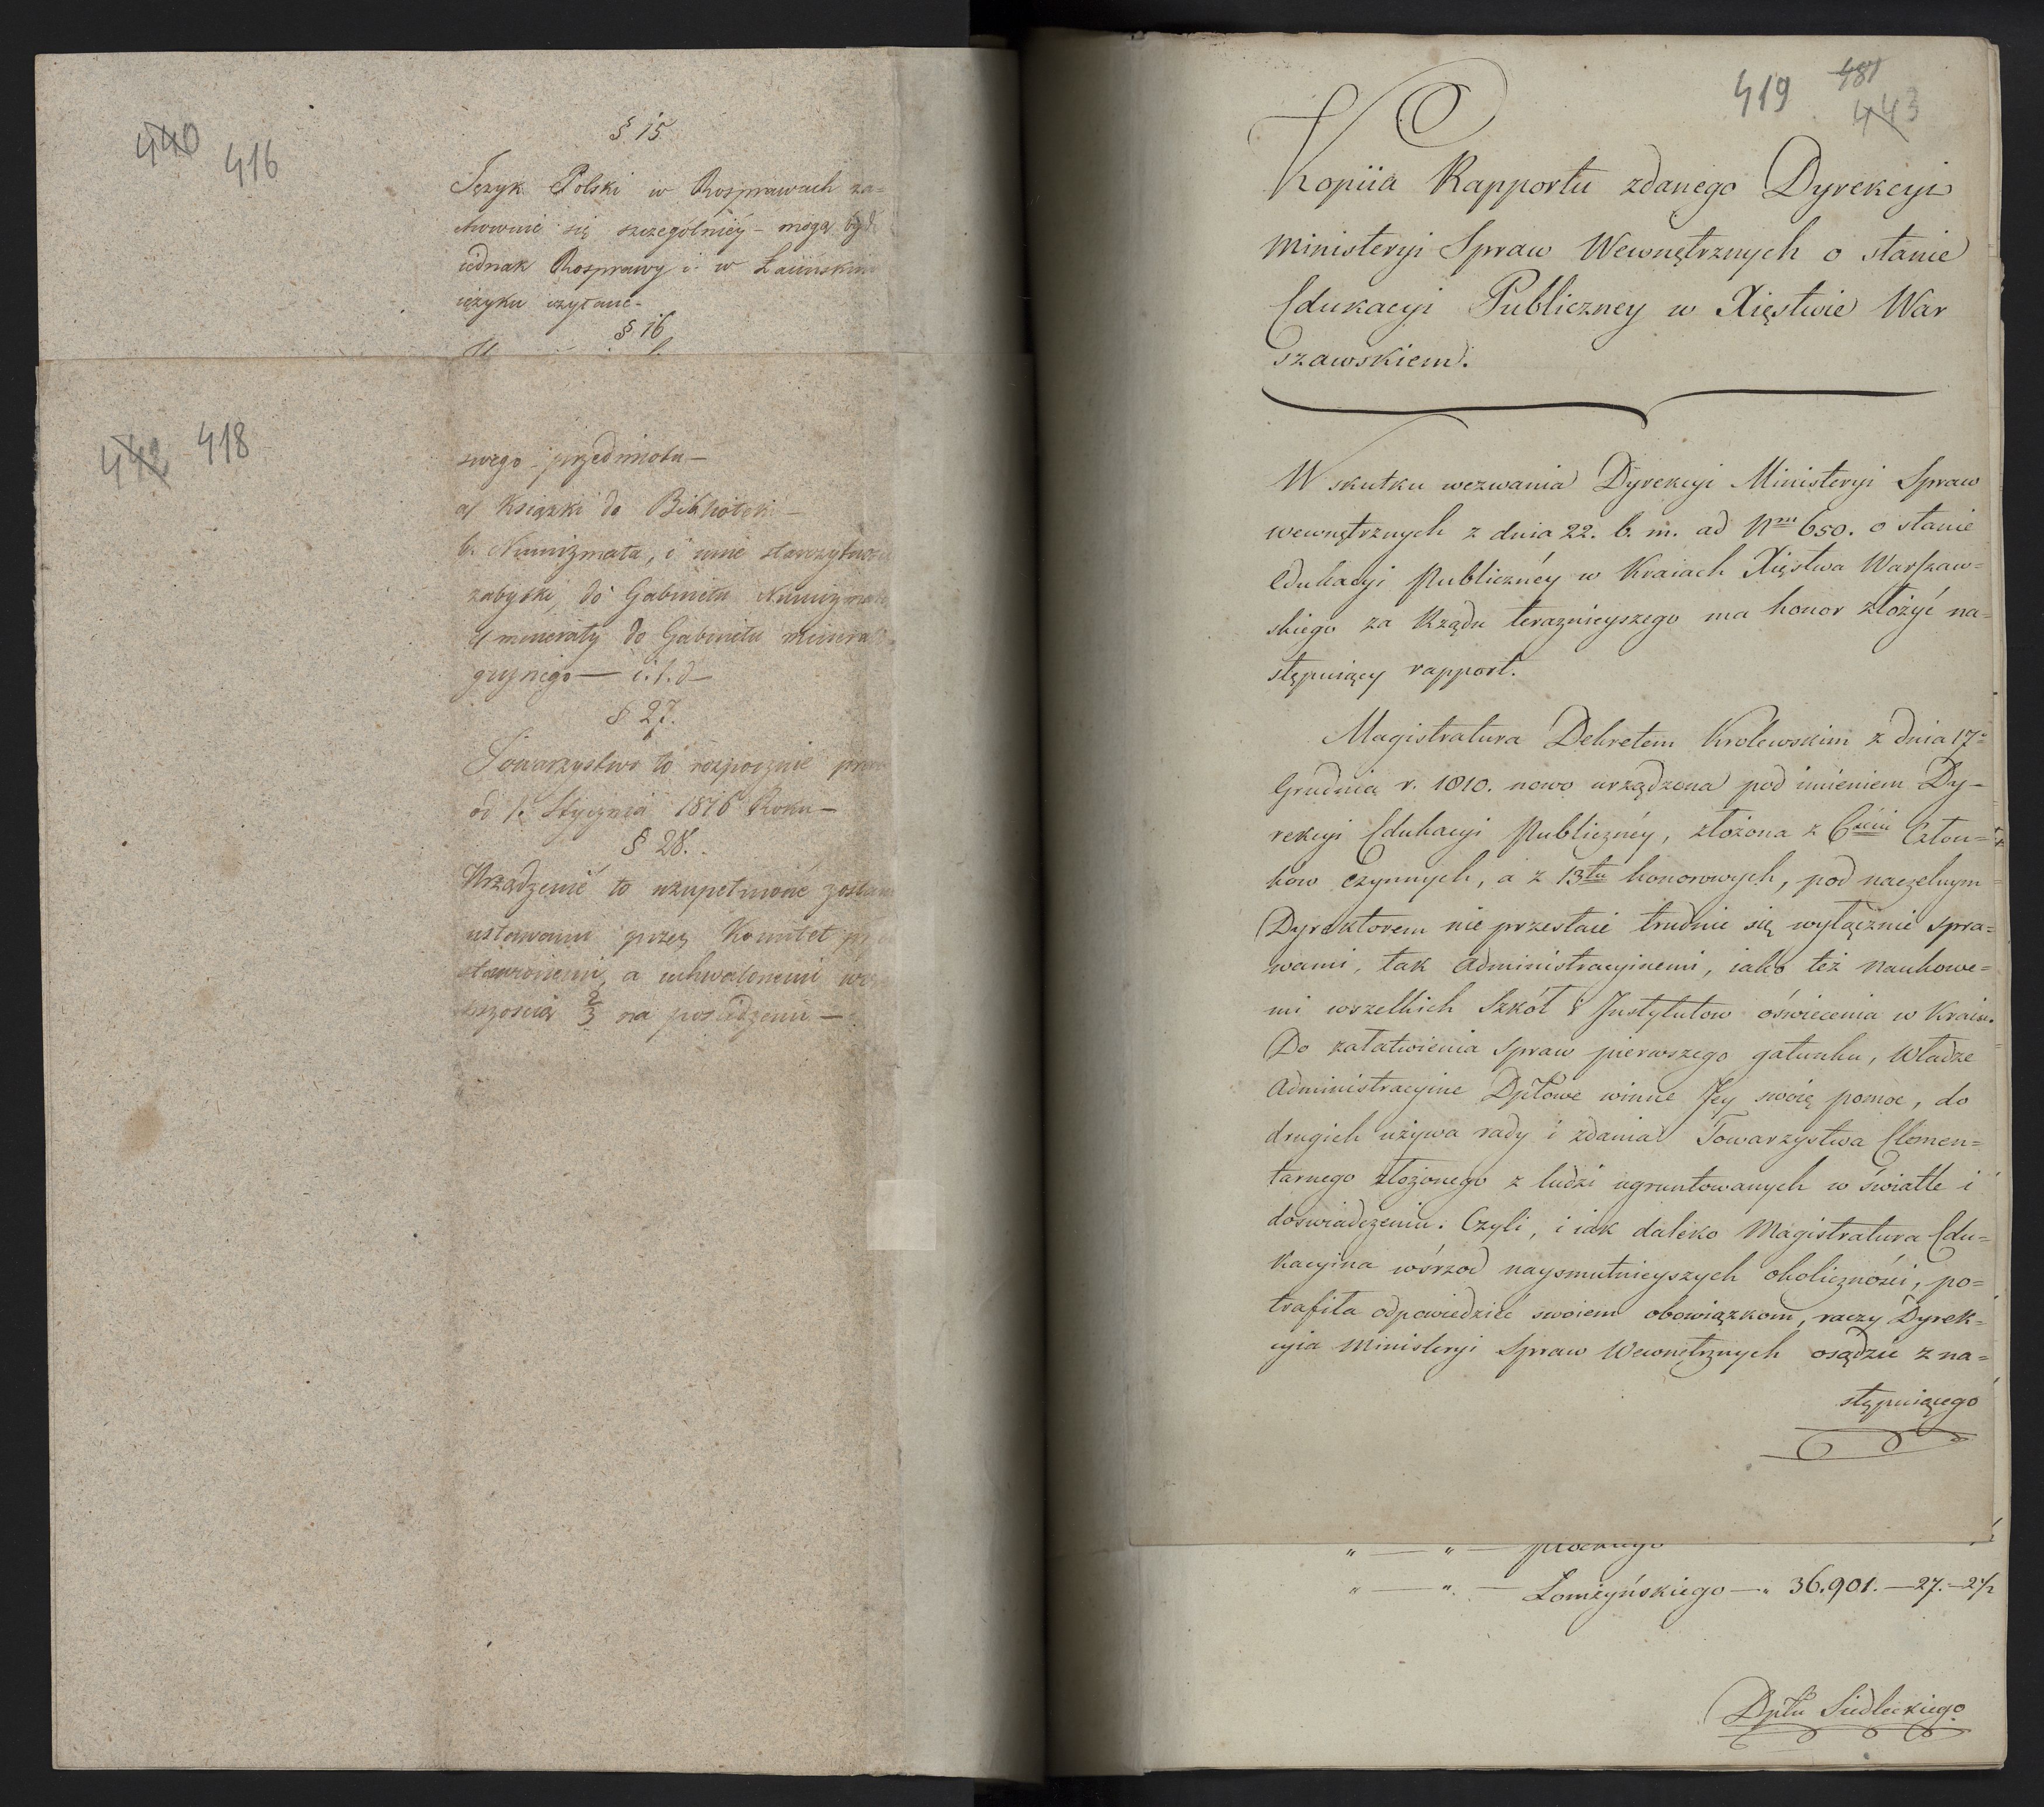 440 416
§ 15
Język Polski w Rosprawach za=
chowuie się szczególniéy – mogą być
iednak Rosprawy i w Łacińskim
ięzyku czytane –
§ 16
442 418
swego przedmiotu –
a/ Książki do Bibliotek –
b. Numizmata, i inne starożytności
zabytki, do Gabinetu Numizmat
c/ minerały do Gabinetu mineral
gicznego — i. t. d —
§ 27.
Towarzystwo to rozpocznie prace
od 1. Stycznia 1816 Roku –
§ 28.
Urządzenie to uzupełnione zostanie
ustawami przez Komitet
a uchwalonemi
kszością 2/3 na posiedzeniu –
419 481 443
Kopiia Rapportu zdanego Dyrekcyi
Ministeryi Spraw Wewnętrznych o stanie
Edukacyi Publiczney w Xięstwie War
szawskiem.
W skutku wezwania Dyrekcyi Ministeryi Spraw
wewnętrznych z dnia 22. b. m. ad Nrm 650. o stanie
Edukacyi Publicznéy w Kraiach Xięstwa Warszaw=
skiego za Rządu teraznieyszego ma honor złożyć na=
stępuiący rapport.
Magistratura Dekretem Krolewskim z dnia 17=
Grudnia r. 1810. nowo urządzona pod imieniem Dy-
rekcyi Edukacyi Publicznéy, złożona z 6ściu Człon=
kow czynnych, a z 13tu honorowych, pod naczelnym
Dyrektorem nie przestaie trudnić się wyłącznie spra=
wami, tak Administracyinemi, iako też naukowe=
mi wszelkich Szkół i Instytutow oświecenia w Kraiu.
Do załatwienia spraw pierwszego gatunku, Władze
Administracyine Dptowe winne Jey swoię pomoc, do
drugich używa rady i zdania Towarzystwa Elemen=
tarnego złożonego z ludzi ugruntowanych w świetle i
doswiadczeniu. Czyli, i iak daleko Magistratura Edu=
kacyina wśrzod naysmutnieyszych okoliczności, po=
trafiła odpowiedzieć swoiem obowiązkom, raczy Dyrek=
cyia Ministeryi Spraw Wewnętrznych osądzić z na=
stępuiącego
" — " — płockiego
" — " — Łomżyńskiego — " 36.901. — 27. — 2 1/2
Dptu Siedleckiego